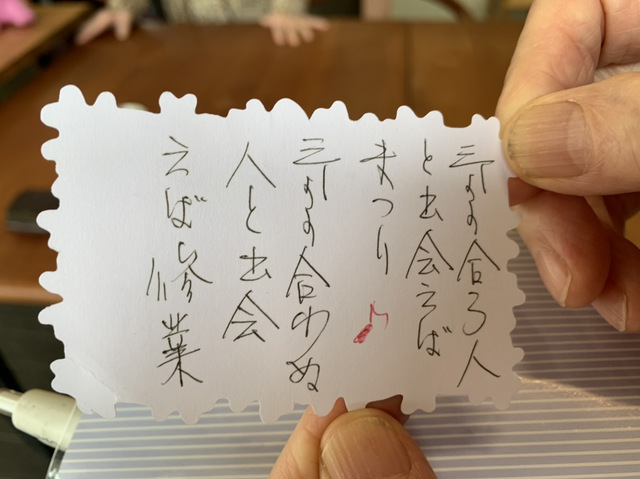 気の合う人
と出会えば
まつり♪
気の合わぬ
人と出会
えば修業